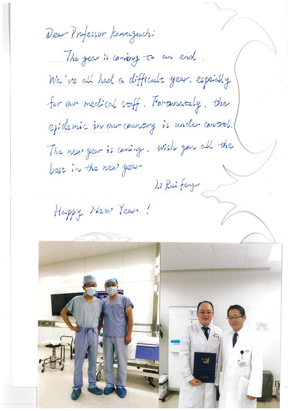 Dear Professor Kawaguchi:
The year is coming to an end.
We've all had a difficult year, espially
for our medical staff. Fortunately, the
epidemic in our country is under control.
The new year is coming. Wish you all the
best in the new year.
Li Ruifeng
Happy New Year!